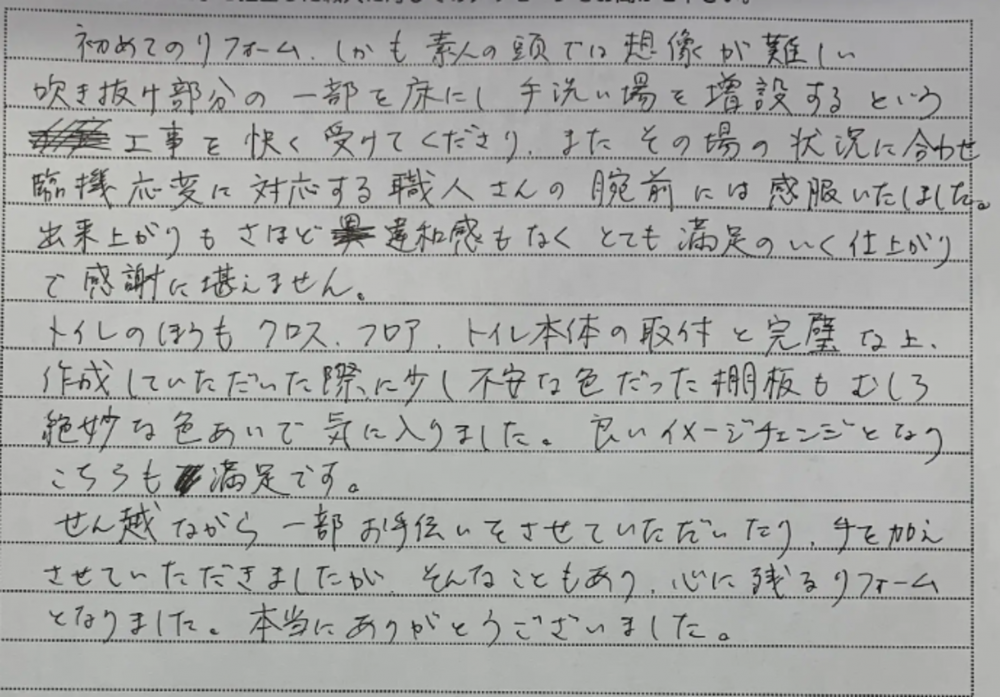 初めてのリフォーム、しかも素人の頭では想像が難しい
吹き抜け部分の一部を床にし手洗い場を増設するという
工事を快く受けてくださり、またその場の状況に合わせ
臨機応変に対応する職人さんの腕前には感服いたしました。
出来上がりもさほど違和感もなくとても満足のいく仕上がり
で感謝に堪えません。
トイレのほうもクロス、フロア、トイレ本体の取付と完璧な上、
作成していただいた際に少し不安な色だった棚板もむしろ
絶妙な色あいで気に入りました。良いイメージチェンジとなり
こちらも満足です。
せん越ながら一部お手伝いをさせていただいたり、手を加え
させていただきましたが、そんなこともあり、心に残るリフォーム
となりました。本当にありがとうございました。